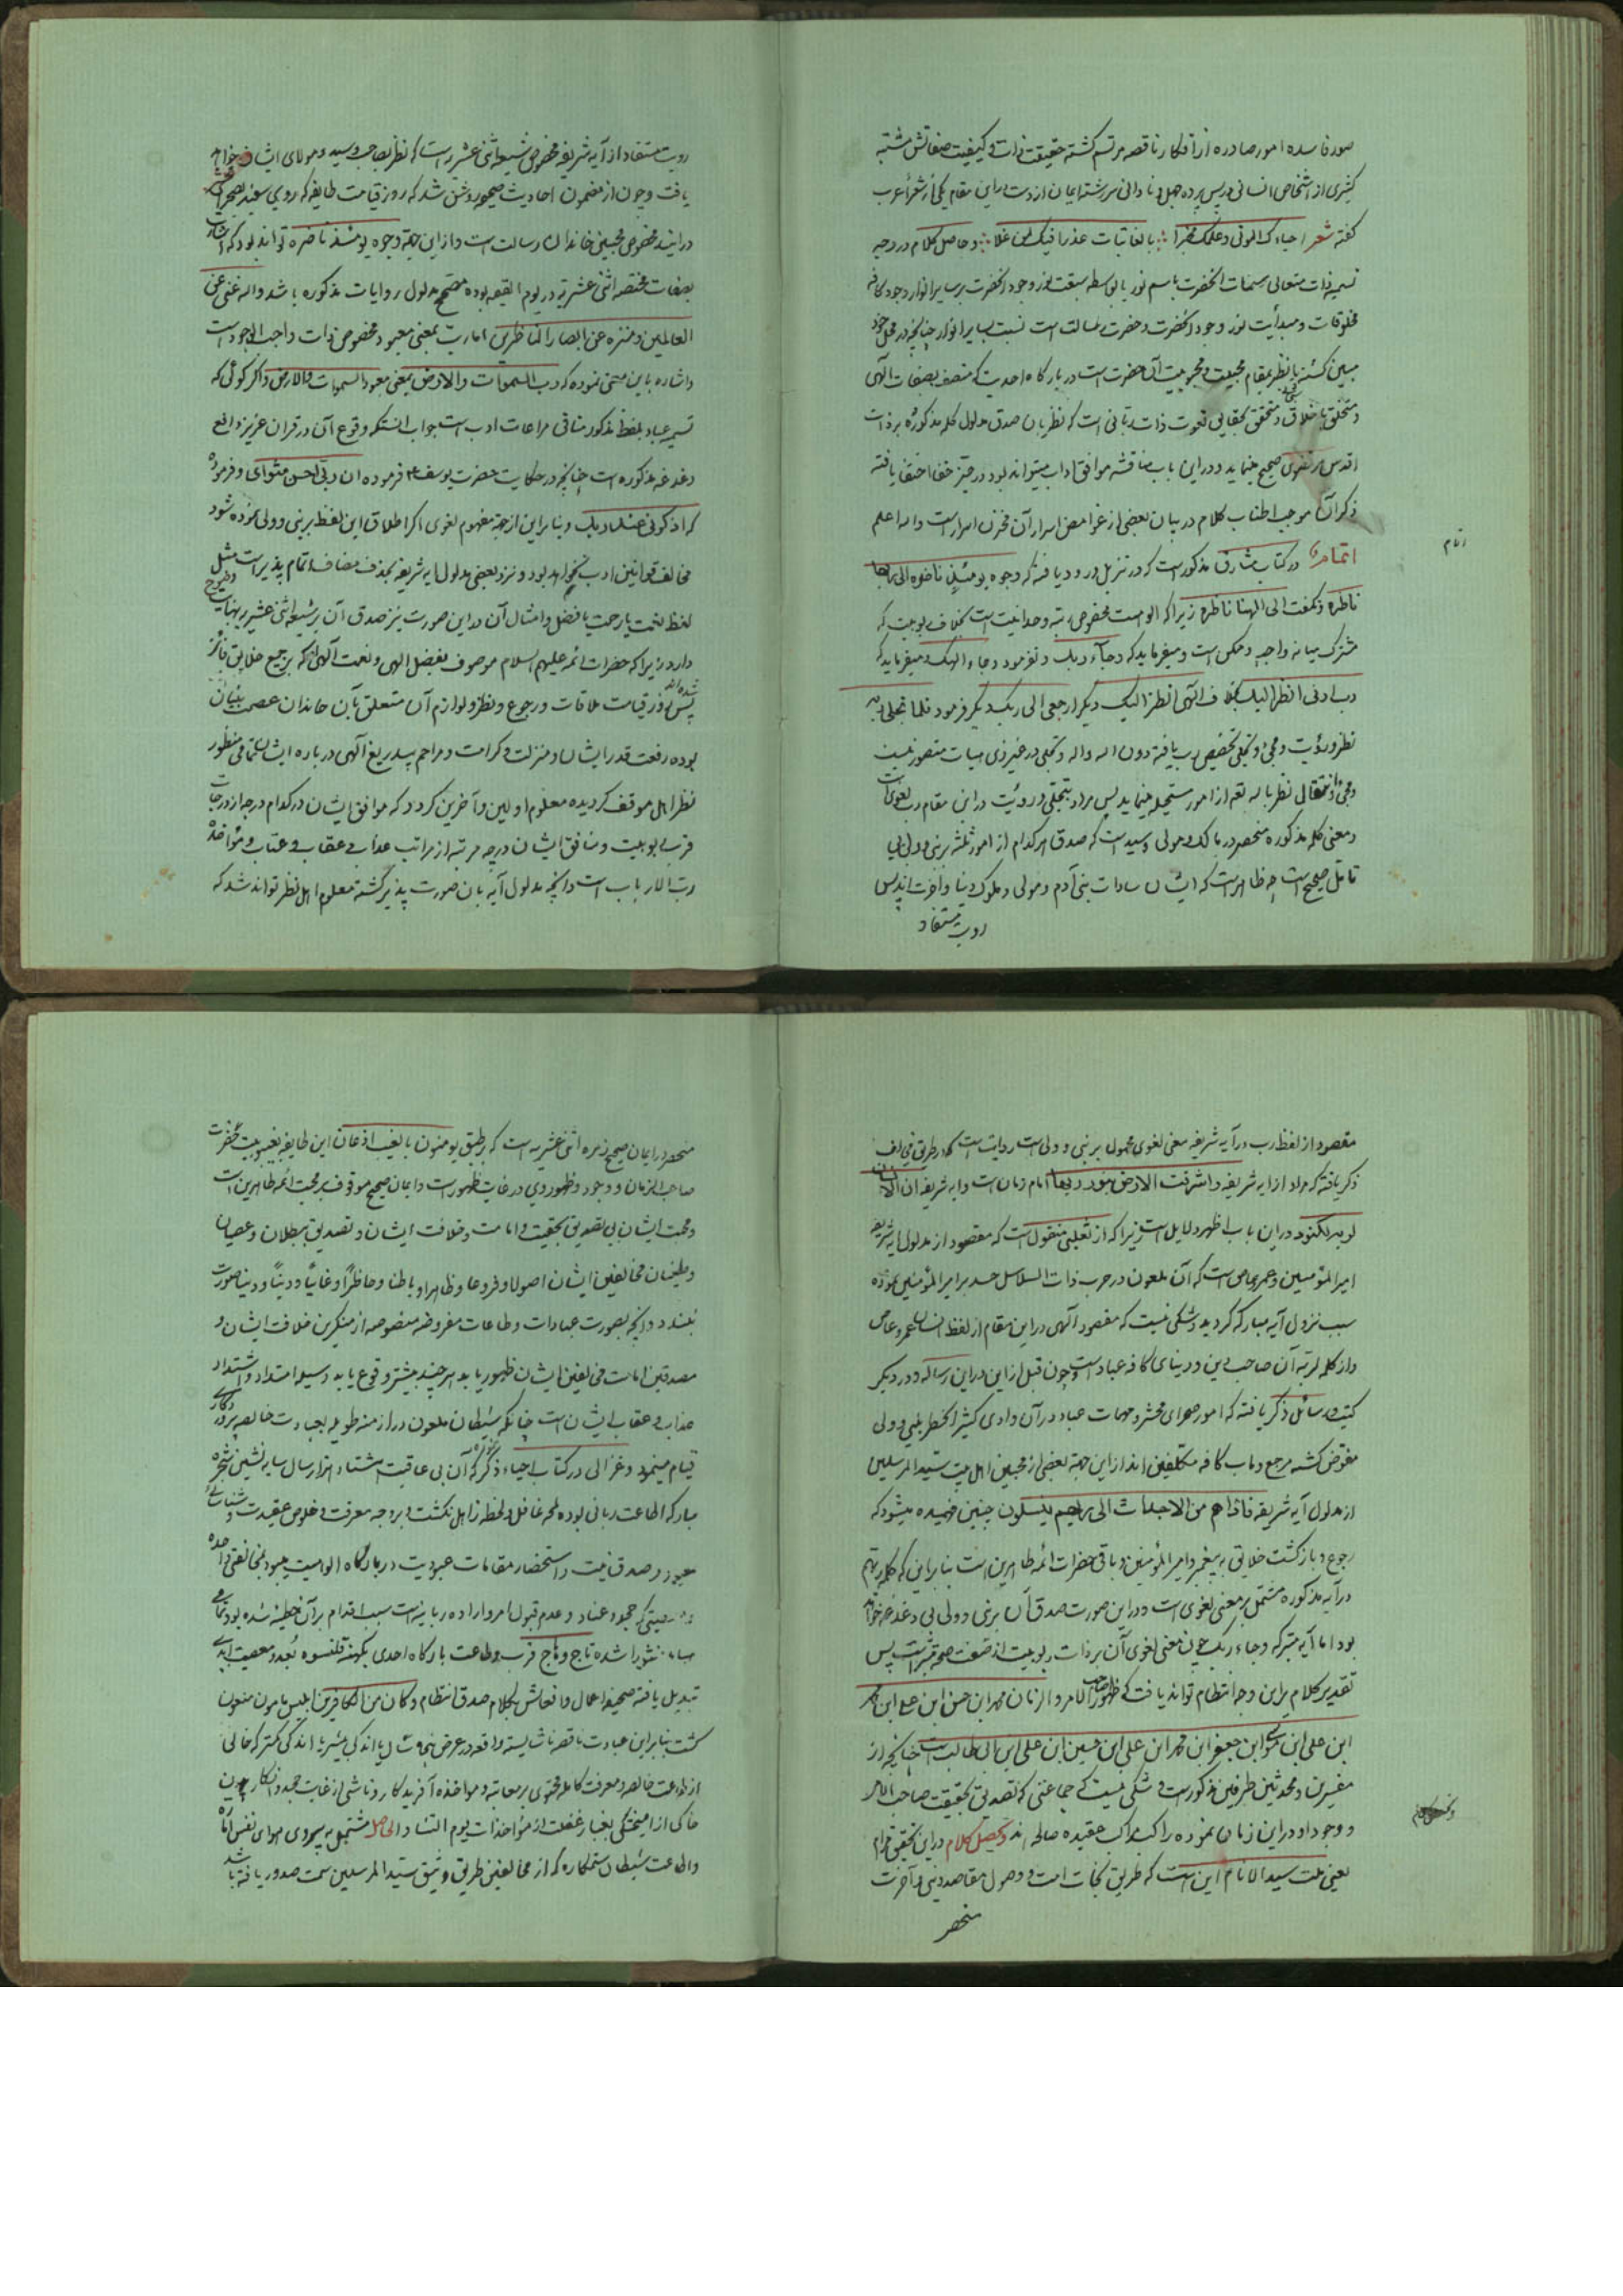 صور فاسده امور صادره از افکار ناقصه مرتسم گشته حقیقت ذات و کیفیت صفاتش مشتبه
کثیری از اشخاص انسانی در پس پرده جهل و نادانی سررشته ایمان از دست در این مقام یکی از شعراء عرب
گفته شعر و حاصل کلام در وجه
تسمیه ذات متعالی سمات انحضرت باسم نور یا بواسطه سبقت نور وجود انحضرت بر سایر انوار وجود کافه
مخلوقات و مبدأیت نور وجود انحضرت و حضرت رسالت است نسبت بسایر انوار چنانچه در محل خود
مبین گشته یا نظر بمقام محبیت و محبوبیت آن حضرت است در بارگاه احدیت که متصف بصفات الهی
و متخلق باخلاق و متحقق بحقایق نعوت ذات ربانی است که نظر بان صدق مدلول کلمه مذکوره بر ذات
اقدس مرتضوی صحیح مینماید و در این باب مناقشه موافق اداب میتواند بود در حیز خفا اختفا یافته
ذکر آن موجب اطناب کلام در بیان بعضی از غوامض اسرار آن مخزن اسرار است والله اعلم
اتمام در کتاب مشارق مذکور است که در تنزیل ورود یافته که وجوه یومئذ ناضره الی ربها
ناظره و نگفت الی الهنا ناظره زیرا که الوهیت مخصوص رتبه وحدانیت است بخلاف ربوبیت که
مشترک میانه واجب و ممکن است و میفرماید که وجاء ربک و نفرمود وجاء الهک و میفرماید که
رب ارنی انظر الیک بخلاف الهی انظر الیک دیگر ارجعی الی ربک دیگر فرمود فلما تجلی ربه
نظر و رؤیت و مجئ و تجلی تخصیص برب یافته دون اله والله و تجلی در غیر ذی هیات متصور نیست
و مجئ و انتقال نظر باله لقم از امور مستحیله مینماید پس مراد بتجلی و رویت در این مقام رب لغوی است
و معنی کلمه مذکوره منحصر در مالک و مولی و سید است که صدق هر کدام از امور ثلثه بر نبی و ولی بی
تامل صحیح است چه ظاهر است که ایشان سادات بنی آدم و مولی و ملوک دنیا و اخرت اند پس
رویت مستفاد
اتمام
رویت مستفاد از آیه شریفه مخصوص شیعه اثنی عشریه است که نظر بصاحب و سید و مولای ایشان خواهد
یافت و چون از مضمون احادیث صحیحه روشن شد که روز قیامت طایفه که روی سفید بصحرای محشر
درایند مخصوص محبین خاندان رسالت است و از این جهة وجوه یومئذ ناضره تواند بود که اشاره
بصفات مختصه اثنی عشریه در یوم القیمه بوده متمم مدلول روایات مذکوره باشد والله غنی عن
العالمین و منزه عن ابصار الناظرین اما رب بمعنی معبود مخصوص ذات واجب الوجود است
و اشاره باین معنی نموده که رب السموات والارض بمعنی معبود السموات والارض و اگر گوئی که
تسمیه عباد بلفظ مذکور منافی مراعات ادب است جواب انستکه وقوع آن در قران عزیز دافع
دغدغه مذکوره است چنانچه در حکایت حضرت یوسف ع فرموده ان ربی احسن مثوای و فرموده
که اذکرنی عند ربک و بنابراین از جهة مفهوم لغوی اگر اطلاق این لفظ بر نبی و ولی نموده شود
مخالف قوانین ادب نخواهد بود و نزد بعضی مدلول ایه شریفه بحذف مضاف اتمام پذیر است مثل
لفظ نعمت یا رحمت یا فضل و امثال آن و در این صورت نیز صدق آن بر شیعه اثنی عشریه نهایت وضوح
دارد زیرا که حضرات ائمه علیهم السلام موصوف بفضل الهی و نعمت آلهی اند که بر جمیع خلایق فائز
شده اند پس روز قیامت ملاقات و رجوع و نظر و لوازم آن متعلق بآن خاندان عصمت بنیان
بوده رفعت قدر ایشان و منزلت و کرامت و مراحم بیدریغ آلهی درباره ایشان تمامی منظور
نظر اهل موقف گردیده معلوم اولین و آخرین گردد که موافق ایشان در کدام درجه از درجات
قرب ربوبیت و منافق ایشان در چه مرتبه از مراتب عذاب و عقاب و عتاب و مؤاخذه
رب الارباب است و انچه مدلول آیه بان صورت پذیر گشته معلوم اهل نظر تواند شد که
مقصود از لفظ رب در آیه شریفه معنی لغوی محمول بر نبی و ولی است روایت است که در طریق مخالف
ذکر یافته که مراد از ایه شریفه واشرقت الارض بنور ربها امام زمان است و ایه شریفه ان الانسان
لربه لکنود در این باب اظهر دلایل است زیرا که از ثعلبی منقول است که مقصود از مدلول ایه شریفه
امیرالمؤمنین و عمرو عاص است که آن ملعون در حرب ذات السلاسل حسد بر امیرالمؤمنین نموده
سبب نزول آیه مبارکه گردید و شکی نیست که مقصود آلهی در این مقام از لفظ انسان عمرو عاص
و از کلمه لربه آن صاحب دین و دنیای کافه عباد است و چون قبل از این در این رساله و در دیگر
کتب و رسائل ذکر یافته که امور صحرای محشر و مهمات عباد در آن وادی کثیر الخطر بنبی و ولی
مفوض گشته مرجع و ماب کافه مکلفین اند از این جهة بعضی از محبین اهل بیت سید المرسلین
از مدلول آیه شریفه فاذا هم من الاجداث الی ربهم ینسلون چنین فهمیده میشود که
رجوع و بازگشت خلائق به پیغمبر و امیرالمؤمنین و باقی حضرات ائمه طاهرین است بنابراین که کلمه ربهم
در آیه مذکوره مشتمل بر معنی لغوی است و در این صورت صدق آن بر نبی و ولی بی دغدغه خواهد
بود اما آیه متبرکه وجاء ربک چون معنی لغوی آن بر ذات ربوبیت از صفت صحة متبرا است پس
تقدیر کلام بر این وجه انتظام تواند یافت که ظهور صاحب الامر والزمان محمد ابن حسن ابن علی ابن محمد
ابن علی ابن موسی ابن جعفر ابن محمد ابن علی ابن حسین ابن علی ابن ابی طالب است چنانچه از
مفسرین و محدثین طرفین مذکور است و شکی نیست که جماعتی که تصدیق بحقیقت صاحب الامر
و وجود او در این زمان نموده راکب مراکب عقیده صالحه اند و تحصیل کلام در این تحقیق مرام
یعنی ملت سید الانام این است که طریق نجات امت و وصول مقاصد دینی و آخرت
منحصر
منحصر در ایمان صحیح زمره اثنی عشریه است که بر طبق یومنون بالغیب اذعان این طایفه بغیبوبیت حضرت
صاحب الزمان و وجود و ظهور وی در غایت ظهور است و ایمان صحیح موقوف بر محبت ائمه طاهرین است
و محبت ایشان بی تصدیق بحقیت و امامت و خلافت ایشان و تصدیق ببطلان و عصیان
و طغیان مخالفین ایشان اصولا و فروعا و ظاهرا و باطنا و حاضرا و غایبا و دینا و دنیا صورت
نبندد و انچه بصورت عبادات و طاعات مفروضه منصوصه از منکرین خلافت ایشان و
مصدقین امامت مخالفین ایشان ظهور یابد هر چند بیشتر وقوع یابد وسیله امتداد و اشتداد
عذاب و عقاب ایشان است چنانکه شیطان ملعون در ازمنه طویله بعبادت خالصه پروردگاری
قیام مینمود و غزالی در کتاب احیاء ذکر نموده که آن بی عاقبت هشتاد هزار سال سایه نشین شجره
مبارکه اطاعت ربانی بوده لمحه غافل و لحظه زاهل نگشت و بر وجه معرفت و خلوص عقیدت و شناسائی
معبود و صدق نیت و استحضار مقامات عبودیت در بارگاه الوهیت میبود بمخالفتی واحده
و معصیتی که جحود عناد و عدم قبول امر و اراده ربانیه است سبب اقدام بر آن خطیئه شده بود تمامی
هباء منثورا شده تاج وهاج قرب و طاعت بارگاه احدی بکهنه قلنسوه بعد و معصیت ابدی
تبدیل یافته صحیفه اعمال و افعالش بکلام صدق انتظام و کان من الکافرین ابلیس مامون معنون
گشت بنابراین عبادت ناقصه ناشایسته واقعه در عرض پنجاه سال یا اندکی بیشتر یا اندکی کمتر که خالی
از اطاعت خالصه و معرفت کامله محتوی بر معاتبه و مواخذه آفریدگار و ناشی از غایت جحود و انکار چون
خاکی از امیختگی بغبار غفلت از مؤاخذات یوم التناد والحاصل مشتمل به پیروی هوای نفس اماره
واطاعت شیطان ستمکاره که از مخالفین طریق وثیق سید المرسلین سمت صدور یافته باشد